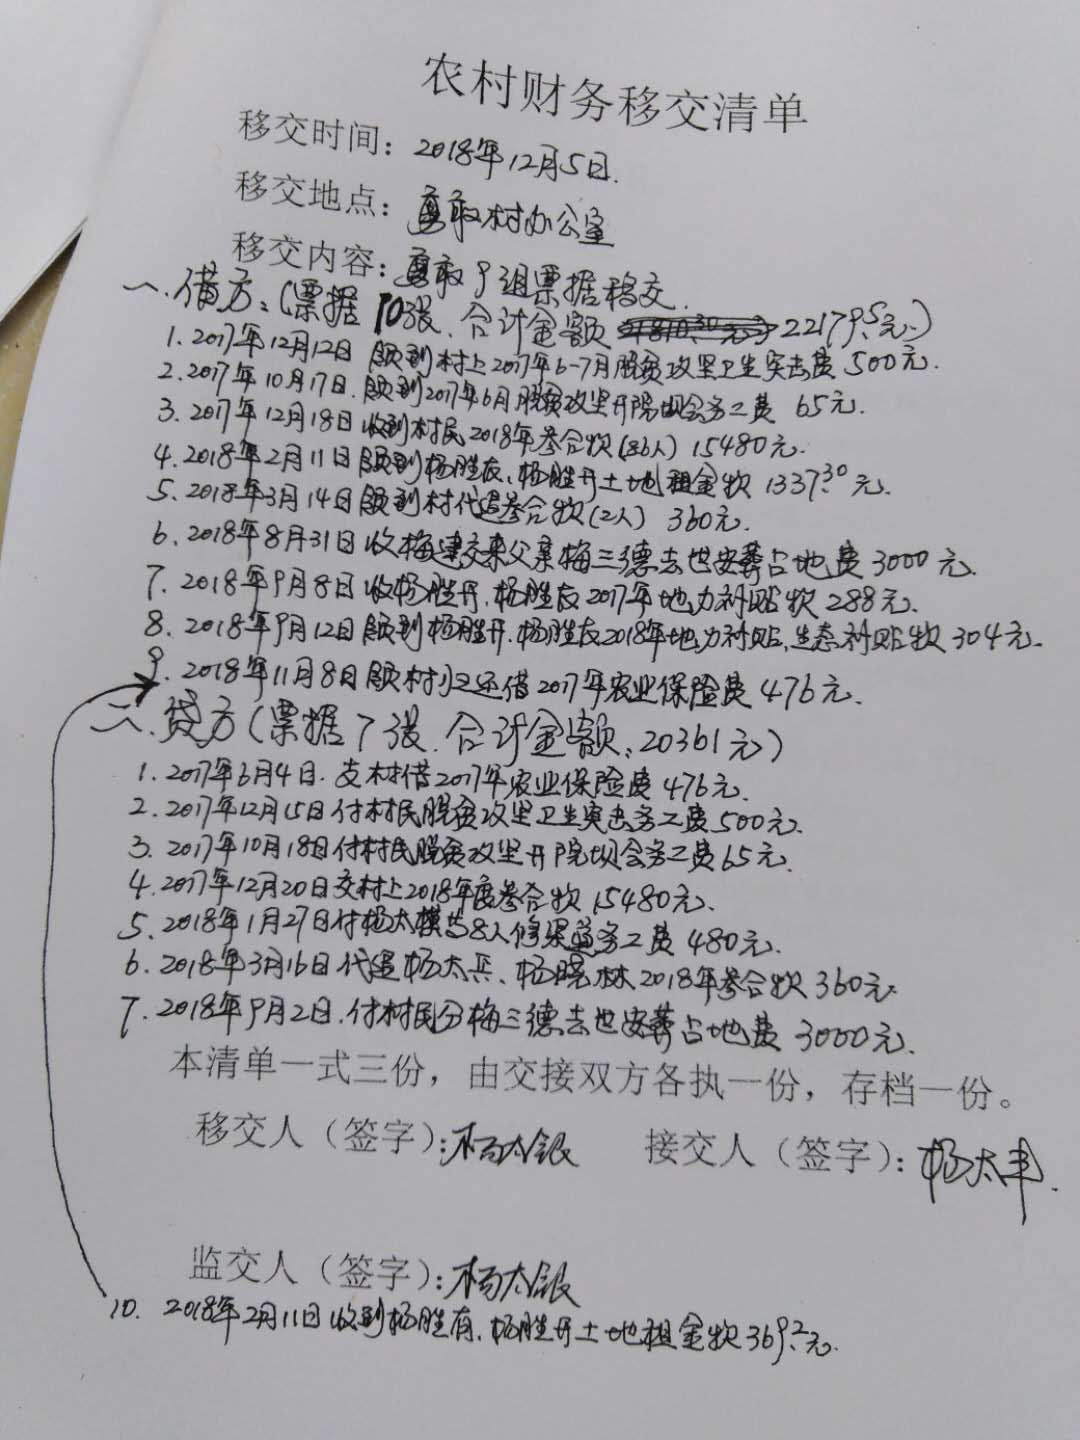 农村财务移交清单
移交时间：2018年12月5日.
移交地点：勇敢村办公室
移交内容：勇敢9组票据移交.
一.借方:(票据10张.合计金额 21810.30元 22179.5元.)
1.2017年12月12日 领到村上2017年6-7月脱贫攻坚卫生突击费500元.
2.2017年10月17日.领到2017年6月脱贫攻坚开院坝会务工费 65元.
3.2017年12月18日 收到村民2018年参合款(86人) 15480元.
4.2018年2月11日领到杨胜友、杨胜开土地租金款 1337.30元.
5.2018年3月14日领到村代退参合款(2人) 360元.
6.2018年8月31日收梅建交来父亲梅三德去世安葬占地费3000元.
7.2018年9月8日收杨胜开.杨胜友2017年地力补贴款288元.
8.2018年9月12日领到杨胜开.杨胜友2018年地力补贴、生态补贴款304元.
9.2018年11月8日领村归还借2017年农业保险费476元.
二.贷方(票据7张.合计金额:20361元)
1.2017年6月4日.支村借2017年农业保险费476元.
2.2017年12月15日付村民脱贫攻坚卫生突击务工费500元.
3.2017年10月18日付村民脱贫攻坚开院坝会务工费65元.
4.2017年12月20日交村上2018年度参合款15480元.
5.2018年1月27日付杨太模等8人修渠道务工费480元.
6.2018年3月16日代退杨太兵、杨晓林2018年参合款360元.
7.2018年9月2日.付村民分梅三德去世安葬占地费 3000元.
本清单一式三份，由交接双方各执一份，存档一份。
移交人（签字）：杨太银 接交人（签字）：杨太丰.
监交人（签字）：杨太银
10. 2018年2月11日收到杨胜有.杨胜开土地租金款369.2元.